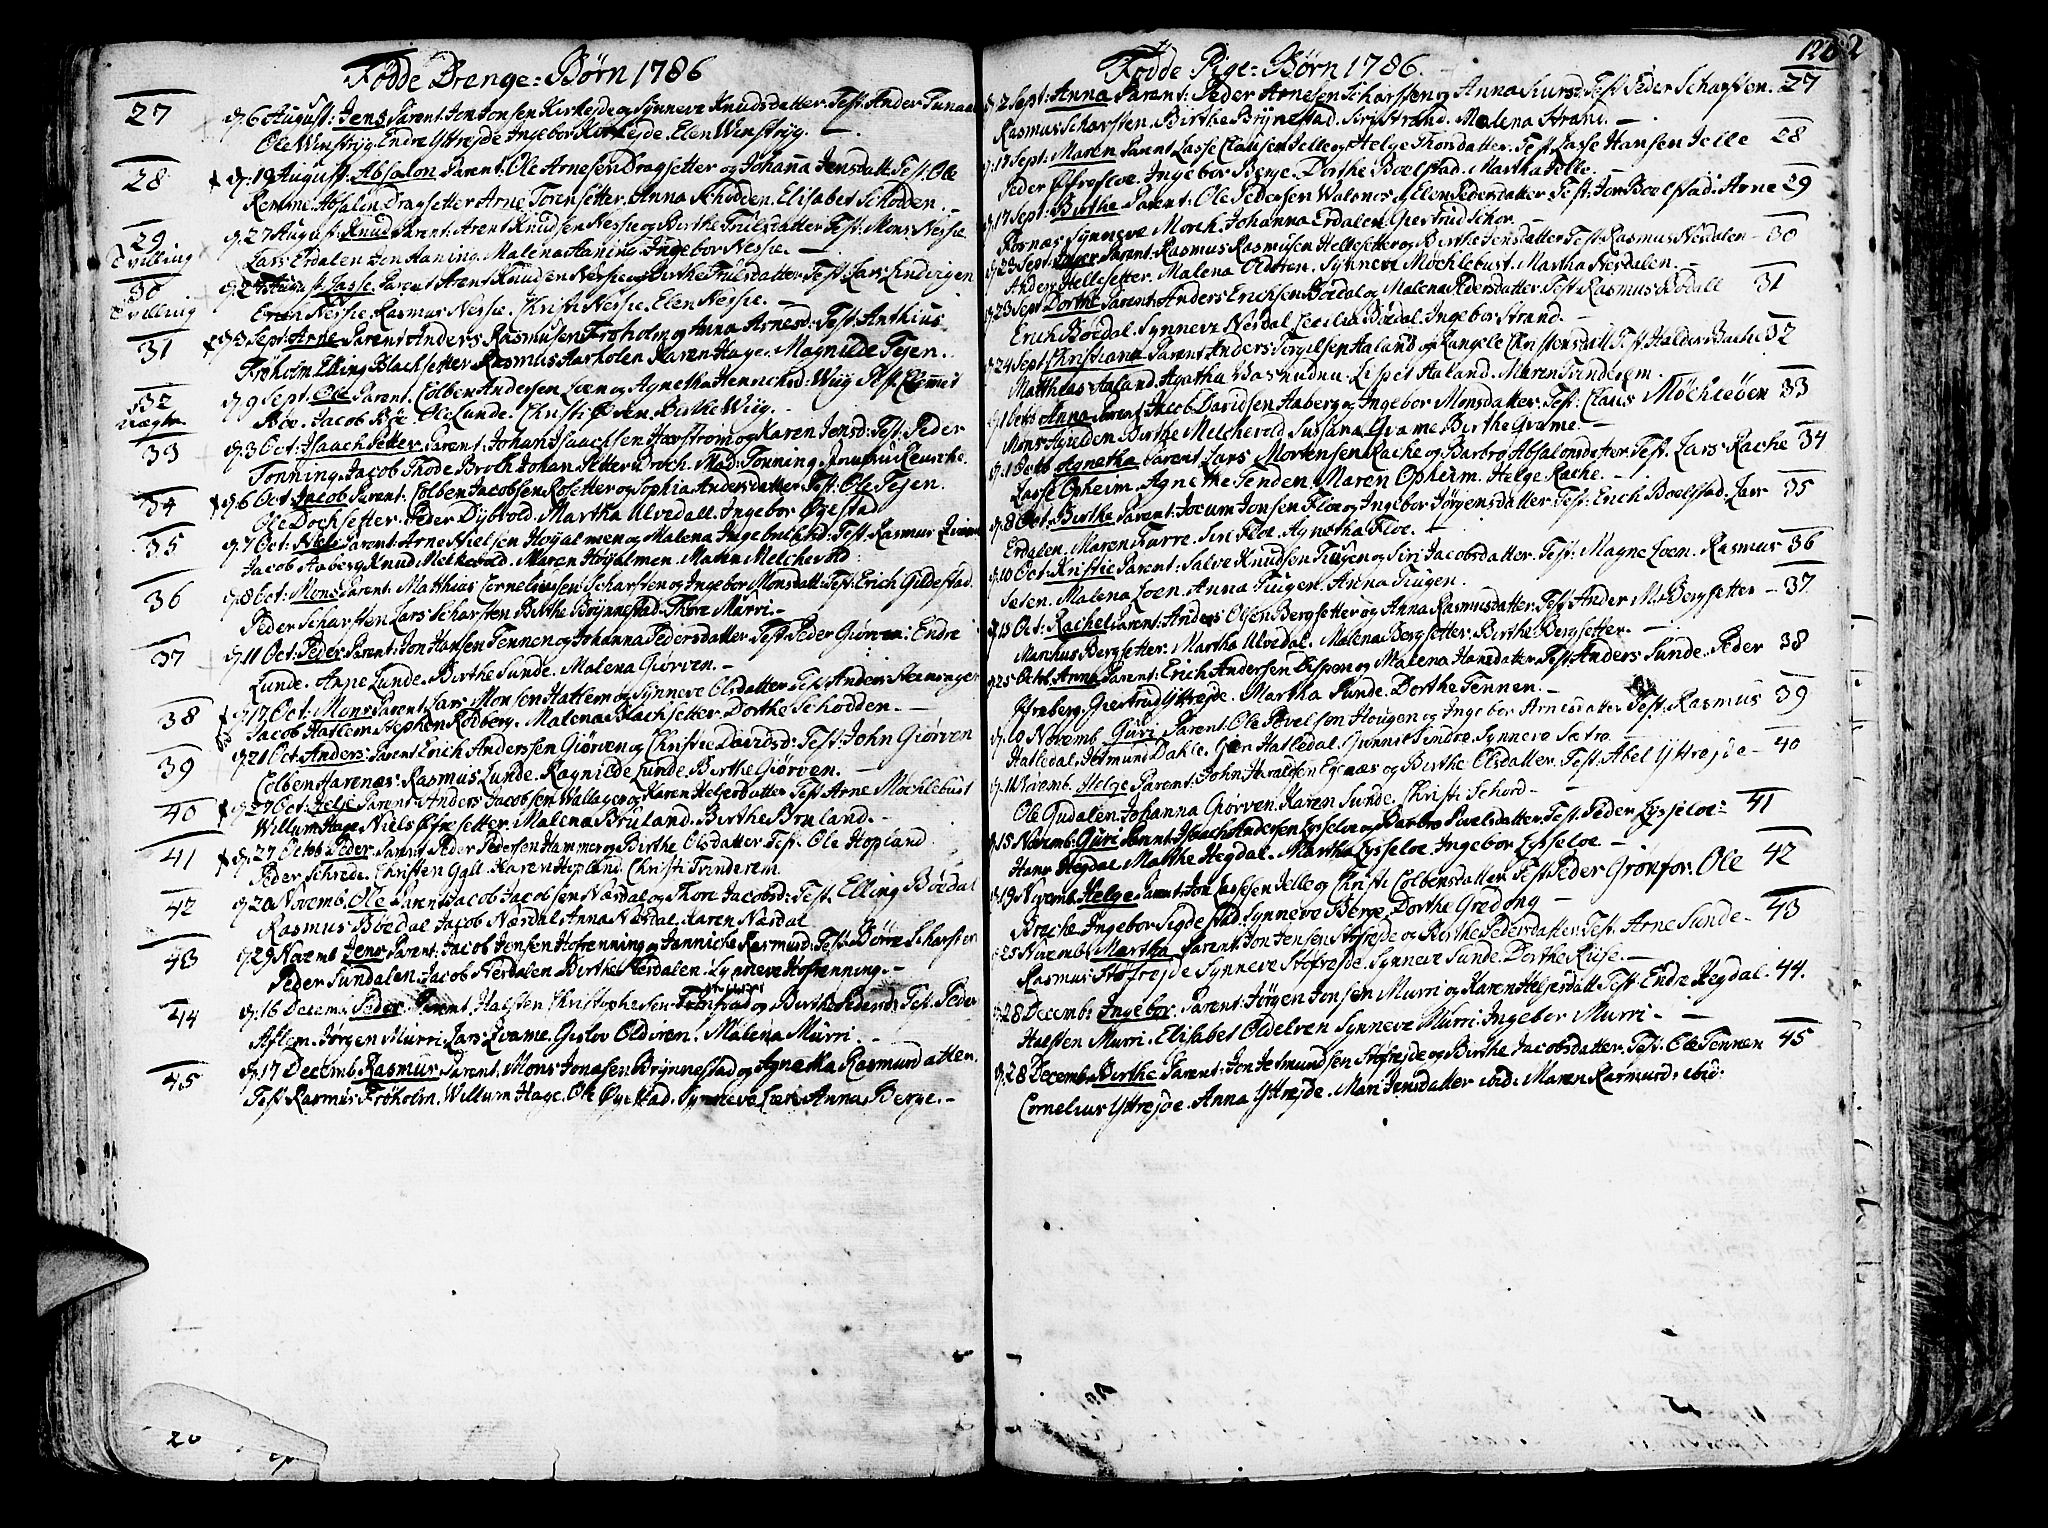 Fødde Drenge=Børn 1786
27 d. 6 August: Jens Parent. Jon Jonsen Kirkejde og Synneve Knudsdatter. Test: Ander
Ole Winstryg. Endre Ytrejde Ingebor Kirkejde. Elen Winstryg. —
28 d. 19 August. Absalon Parent. Ole Arnesen Dragsetter og Johanna Jensdatt. Test. Ole
Remme Absalon Dragsetter Arne Torensetter. Anna Schodden. Elisabet Schodden. —
29 d. 27 August. Knud Parent: Arent Knudsen Nesse og Berthe Friisdatter Test: Mons Nesse
Tvilling Lars Erdalen Jon Haning. Malena Haning. Ingebor Nesse. —
30 d. 27 August. Lasse. Parent Arent Knudsen Nesse og Berthe Friisdatter Test. Lars
Tvilling Nesse. Rasmus Nesse. Christi Nesse. Elen Nesse. —
31 d. 3 Sept: Arne Parent Anders Rasmussen Frøholm og Anna Arnesd: Test. Anthius
Frøholm Elling Blachsetter Rasmus Aarholen Karen Hage. Magnilde Tejen.
32 d. 9 Sept. Ole Parent. Colben Andersen Loen og Agnetha Henrichsd: Wiig Test.
Bøe. Jacob Bøe. Ole Sunde. Christi Øren. Berthe Wiig. —
33 d. 3 Oct: Isaach Petter. Parent: Johan Isaachsen Haarstrom og Karen Jensd: Test: Peder
Tonning. Jacob Thode Broch Johan Petter Broch. Mad: Tonning. Reusche.
34 d. 6 Oct. Jacob Parent: Colben Jacobsen Rosetter og Sophia Andersdatter. Test: Ole Tejen.
Ole Dochsetter. Peder Dybvold. Martha Ulvedall. Ingebor Øgestad
35 d. 7 Oct: Niels Parent: Arne Nielsen Høyalmen og Malena Test: Rasmus
Jacob Aaberg Knud Melkevold. Maren Høyalmen. Malin Melchevold
36 d. 8 Oct: Mons Parent: Matthias Corneliussen Scharsten og Ingebor Monsdatt: Test: Erich Gildestad
Peder Scharsten Lars Scharsten Birthe Brynnestad. Thore Murri. —
37 d. 11 Oct: Peder Parent: Jon Hansen Tennen og Johanna Pedersdatter Test: Peder Giørven: Endre
Lunde. Arne Lunde. Berthe Sunde. Malena Giørven. —
38 d. 17 Oct. Mons Parent Lars Monsen Hatlem og Synneve Olsdatter Test.
Jacob Hatlem Stephen Rødberg. Malena Blachsetter. Dorthe Schodden. —
39 d. 21 Oct: Anders Parent Erich Andersen Giørven og Christie Davidsd: Test: John Giørven
Colben Harenæs. Rasmus Lunde. Ragnilde Lunde. Berthe Giørven. —
40 d. 27 Oct. Helje Parent. Anders Jacobsen Wallager og Karen Heljesdatter Test Arne Møchlebust
Willum Hage Niels Øfresetter. Malena Bruland. Berthe Bruland. —
41 d. 27 Octob. Peder. Parent Peder Pedersen Hammer og Berthe Olsdatter. Test. Ole Hopland
Peder Schrede. Christen Gall. Karen Hopland. Christi Tvinderem.
42 d. 20 Novemb. Ole Parent Jacob Jacobsen Næsdal og Thore Jacobsd: Test. Elling Bøedal
Rasmus Bøedal Jacob Næsdal Anna Næsdal. Karen Næsdal
43 d. 29 Novemb Jens Parent. Jacob Jensen Hofrenning og Jannicke Rasmusd: Test. Børre Scharsten
Peder Sundalen. Jacob Nesdalen Birthe Nesdalen. Synneve Hofrenning. —
44 d. 16 Decemb. Peder. Parent. Halsten Christophersen og Berthe Pedersd: Test: Peder
Aslem. Jørgen Murri. Lars Qvame. Gislov Oldøren. Malena Murri.
45 d. 17 Decemb. Rasmus Parent. Mons Jonasen Brynnestad og Agnetha Rasmusdatter.
Test Rasmus Frøholm. Willum Hage. Ole Øgestad. Synneve Loen Anna Berge. —
20
Fødde Pige=Børn 1786.
d. 2 Sept: Anna Parent: Peder Arnesen Scharsten og Anna Test: Peder Scharsten. 27
Rasmus Scharsten. Birthe Brynestad. Siri Strand. Malena Strand. —
d. 17 Sept: Maren Parent Lasse Clausen Jelle og Helge Thorsdatter. Test. Lasse Hansen Jelle 28
Peder Øfrefloe. Ingebor Berge. Dorthe Boelstad. Martha Jelle.
d. 17 Sept: Birthe Parent: Ole Pedersen Walsnes og Elen Pedersdatter Test: Jon Boelstad. Arne 29
Rosnæs Synneve Morch Johanna Erdalen. Giertrud —
d. 23 Sept: Inger Parent. Rasmus Rasmusen Hellesetter og Birthe Jensdatter. Test. Rasmus Nesdalen — 30
Anders Hellesetter. Malena Oldøren. Synneve Møchlebust. Martha Nesdalen. —
d. 23 Sept Dorthe Parent: Anders Erichsen Bøedal og Malena Pedersdatter. Test Rasmus Bødall 31
Erich Bøedal. Synneve Nesdal Cecilia Bøedal. Ingebor Strand. —
d. 24 Sept Christiana Parent Anders Torgilsen Haland og Rangele Christensdatt Test. Haldor Bache 32
Matthias Haland. Agatha Lispet Haland. Maren Tvinderem. —
d. 1 Octb Anna Parent Jacob Davidsen Aaberg og Ingebor Monsdatter. Test: Claus Møchleøen 33
Mons Birthe Melchevold Sussana Qvame. Birthe Qvame. —
d. 1 Octb Agnetha Parent Lars Mortensen Rache og Barbro Absalonsdatter. Test. Lars Rache 34
Lasse Opheim. Agnethe Tenden. Maren Opheim. Helge Rache. —
d. 8 Oct. Birthe Parent: Jocum Jonsen Floe og Ingebor Jørgensdatter: Test: Erich Boelstad. Lars 35
Erdalen. Maren Siri Floe. Agnetha Floe. —
d. 10 Oct: Kristie Parent: Salve Knudsen Tiugen og Siri Jacobsdatter. Test: Magne Loen. Rasmus 36
Sæten. Malena Loen. Anna Tiugen. Anna Tiugen.
d. 15 Oct: Rachel Parent: Anders Olsen Bergsetter og Anna Rasmusdatter. Test. Ander M: Bergsetter — 37.
Marchus Bergsetter. Martha Ulvedal. Malena Bergsetter. Birthe Bergsetter. —
d. 25 Octob. Anna Parent: Erich Andersen og Malena Hansdatter. Test. Anders Sunde. Peder 38
Øfreberg. Giertrud Yttrejde. Martha Sunde. Dorthe Tennen. —
d. 10 Novemb. Guri Parent Ole Povelsen Hougen og Ingebor Arnesdatter Test. Rasmus 39
Hatledal. Jetmund Dahle. Hatledal. Gunni Sindre. Synneve Sætre —
d. 11 Novemb. Helge Parent: John Haraldsen Egenæs og Birthe Olsdatter. Test: Abel Yttrejde — 40
Ole Gudalen. Johanna Giørven. Karen Sunde. Christi Schord —
d. 15 Novemb: Guri Parent: Isaach Andersen Eysseloe og Barbro Paulsdatter. Test. Peder Eysseloe 41
Hans Hegdal Malthe Hegdal. Martha Eysseloe. Ingebor Eysseloe —
d. 19 Novemb. Helge Parent: Jon Lassesen Jelle og Christi Colbensdatter. Test Peder Grønfor. Ole 42
Broche Ingebor Sigdestad. Synneve Berge. Dorthe Grødong —
d. 25 Novemb. Martha Parent: Jon Jensen Støfrejde og Birthe Pedersdatter Test: Arne Sunde — 43
Rasmus Støfrejde Synneve Støfrejde. Synneve Sunde. Dorthe Riise. —
d. 28 Decemb: Ingebor Parent: Jørgen Jonsen Murri og Karen Heljesdatt Test: Endre Hegdal. 44.
Halsten Murri. Elisabet Oldelven Synneve Murri. Ingebor Murri — —
d. 28 Decemb Birthe Parent: Jon Jetmundsen Støfrejde og Birthe Jacobsdatter. Test: Ole Tennen 45
Cornelius Yttrejde. Anna Yttrejde. Mari Jensdatter ibid: Maren Rasmusd: ibid: